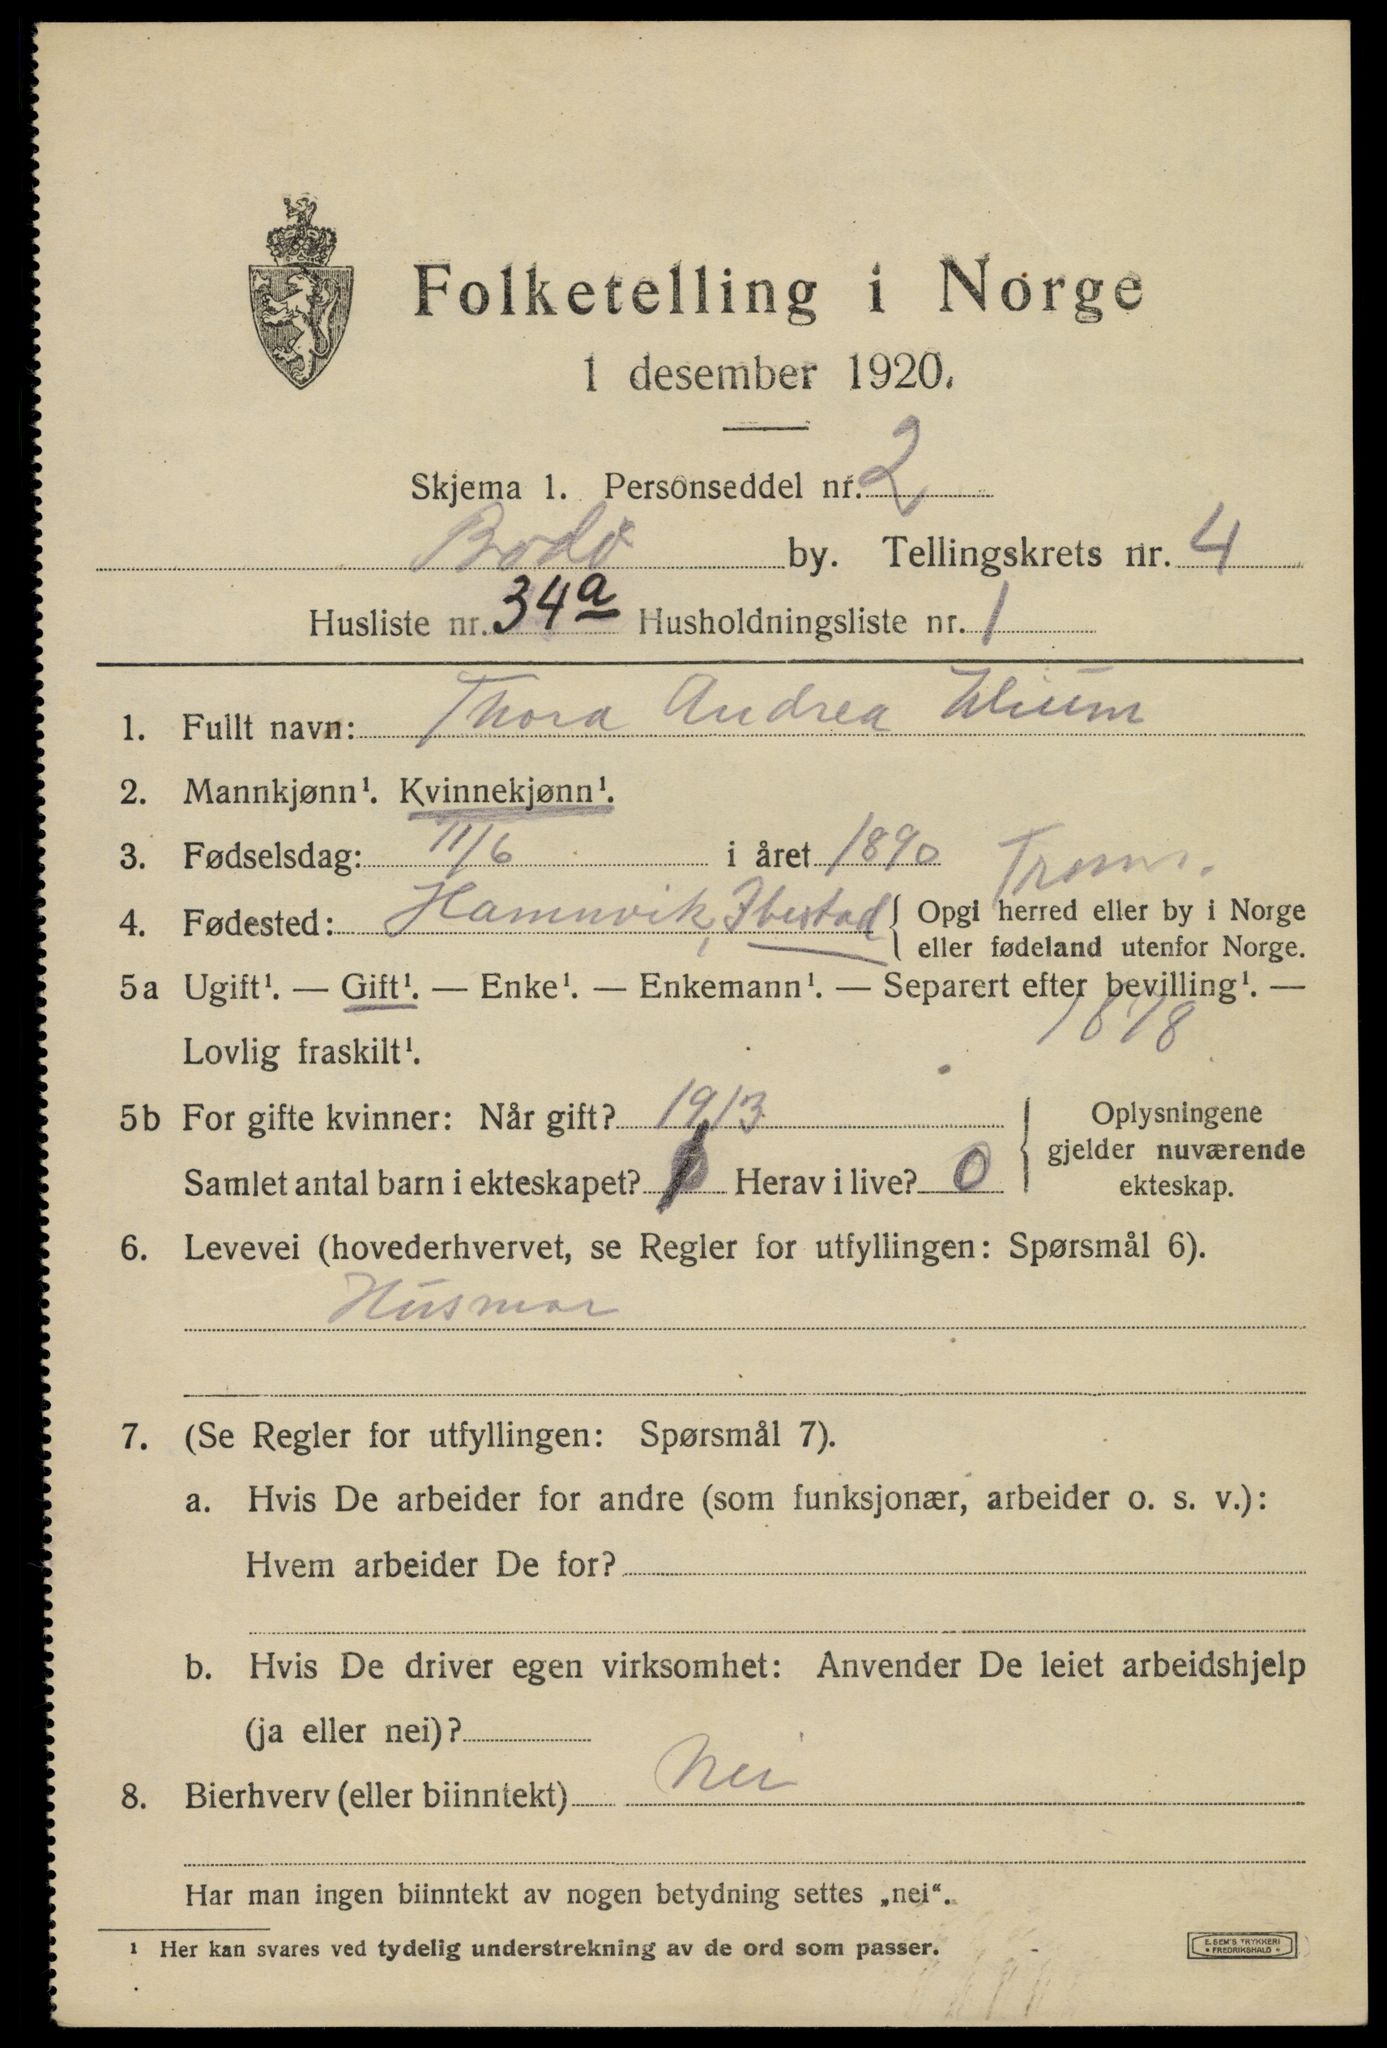 Folketelling i Norge
1 desember 1920.
Skjema 1. Personseddel nr. 2
Bodø by. Tellingskrets nr. 4
Husliste nr. 34a Husholdningsliste nr. 1
1. Fullt navn: Thora Andrea
2. Mannkjønn¹. Kvinnekjønn¹.
3. Fødselsdag: 11/6 i året 1890
Troms.
4. Fødested: Hamnvik, Ibestad { Opgi herred eller by i Norge
eller fødeland utenfor Norge.
5a Ugift¹. — Gift¹. — Enke¹. — Enkemann¹. — Separert efter bevilling¹. —
1878
Lovlig fraskilt¹.
5b For gifte kvinner: Når gift? 1913
Samlet antal barn i ekteskapet? 0 Herav i live? 0
} Oplysningene
gjelder nuværende
ekteskap.
6. Levevei (hovederhvervet, se Regler for utfyllingen: Spørsmål 6).
Husmor
7. (Se Regler for utfyllingen: Spørsmål 7).
a. Hvis De arbeider for andre (som funksjonær, arbeider o. s. v.):
Hvem arbeider De for?
b. Hvis De driver egen virksomhet: Anvender De leiet arbeidshjelp
(ja eller nei)?
8. Bierhverv (eller biinntekt) Nei
Har man ingen biinntekt av nogen betydning settes „nei“.
1 Her kan svares ved tydelig understrekning av de ord som passer.
E. SEM'S TRYKKERI
FREDRIKSHALD